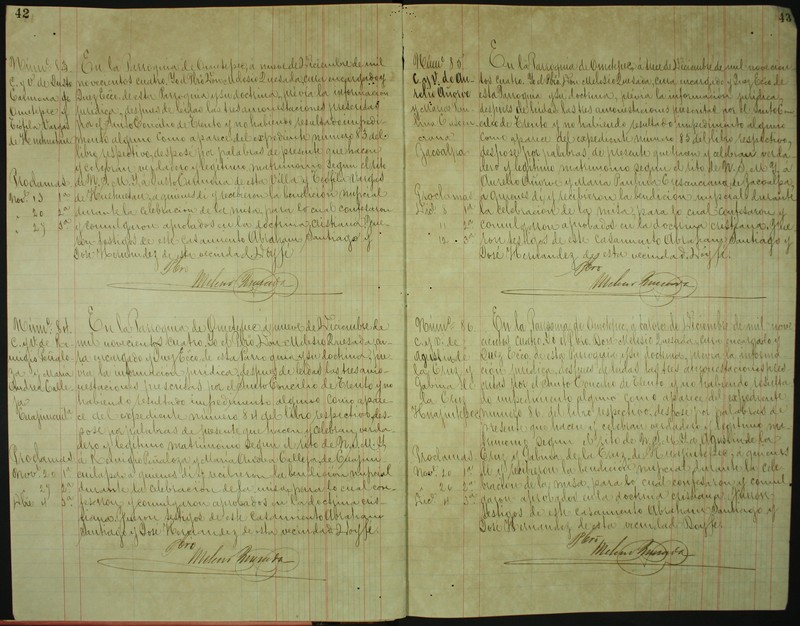 42
Núm. 83.
C. y V. de Justo
Carmona de
Ometepec y
Teofila Vargas
de Huehuetan
Proclamas
Nov. 13 1ª
" 20 2ª
" 27 3ª
En la Parroquia de Ometepec, á nueve de Diciembre de mil
novecientos cuatro. Yo el Pbro. Don Melesio Quesada, cura encargado y
Juez Ecco. de esta Parroquia y su doctrina, previa la información
jurídica, después de leidas las tres amonestaciones prescritas
por el Santo Concilio de Trento y no habiendo resultado impedi-
mento alguno como aparece del expediente número 83 del
libro respectivo, desposé por palabras de presente que hacen
y celebran verdadero y legítimo matrimonio según el rito
de N. S. M. Y. á Justo Carmona de esta Villa y Teofila Vargas
de Huehuetan, á quienes di y recibieron la bendición nupcial
durante la celebración de la misa, para lo cual confesaron
y comulgaron aprobados en la doctrina cristiana. Fue-
ron testigos de este casamiento Abraham Santiago y
José Hernandez de esta vecindad. Doy fe.
Pbro.
Melesio Quesada
Núm. 84.
C. y V. de Re-
migio Peñalo-
za y María
Andrea Calle-
ja
Cuapinula
Proclamas
Nov. 20 1ª
" 27 2ª
Dbre. 4 3ª
En la Parroquia de Ometepec, á nueve de Diciembre de
mil novecientos cuatro. Yo el Pbro. Don Melesio Quesada, cu-
ra encargado y Juez Ecco. de esta Parroquia y su doctrina, pre-
via la información jurídica, después de leidas las tres amo-
nestaciones prescritas por el Santo Concilio de Trento y no
habiendo resultado impedimento alguno como apare-
ce del expediente número 84 del libro respectivo, des-
posé por palabras de presente que hacen y celebran verda-
dero y legítimo matrimonio según el rito de N. S. M. Y.
á Remigio Peñaloza y María Andrea Calleja de
á quienes di y recibieron la bendición nupcial
durante la celebración de la misa, para lo cual con-
fesaron y comulgaron aprobados en la doctrina cris-
tiana. Fueron testigos de este casamiento Abraham
Santiago y José Hernandez de esta vecindad. Doy fe.
Pbro.
Melesio Quesada
43
Núm. 85.
C. y V. de Au-
relio Añorve
y María Pau-
lina
Cacoalpa
Proclamas
Dic. 8 1ª
" 11 2ª
" 12 3ª
En la Parroquia de Ometepec, á trece de Diciembre de mil novecien-
tos cuatro. Yo el Pbro. Don Melesio Quesada, cura encargado y Juez Ecco. de
esta Parroquia y su doctrina, previa la información jurídica,
después de leidas las tres amonestaciones prescritas por el Santo Con-
cilio de Trento y no habiendo resultado impedimento alguno
como aparece del expediente número 85 del libro respectivo,
desposé por palabras de presente que hacen y celebran verda-
dero y legítimo matrimonio según el rito de N. S. M. Y. á
Aurelio Añorve y María Paulina de Cacoalpa,
á quienes di y recibieron la bendición nupcial durante
la celebración de la misa, para lo cual confesaron y
comulgaron aprobados en la doctrina cristiana. Fue-
ron testigos de este casamiento Abraham Santiago y
José Hernandez de esta vecindad. Doy fe.
Pbro.
Melesio Quesada
Núm. 86.
C. y V. de
Agustin de
la Cruz y
Gabina de
la Cruz
Huajintepec
Proclamas
Nov. 20 1ª
" 26 2ª
Dic. 4 3ª
En la Parroquia de Ometepec, á catorce de Diciembre de mil nove-
cientos cuatro. Yo el Pbro. Don Melesio Quesada, cura encargado y
Juez Ecco. de esta Parroquia y su doctrina, previa la informa-
ción jurídica, después de leidas las tres amonestaciones pres-
critas por el Santo Concilio de Trento y no habiendo resulta-
do impedimento alguno como aparece del expediente
número 86 del libro respectivo, desposé por palabras de
presente que hacen y celebran verdadero y legítimo ma-
trimonio según el rito de N. S. M. Y. á Agustin de la
Cruz y Gabina de la Cruz de Huajintepec, á quienes
di y recibieron la bendición nupcial durante la cele-
bración de la misa, para lo cual confesaron y comul-
garon aprobados en la doctrina cristiana. Fueron
testigos de este casamiento Abraham Santiago y
José Hernandez de esta vecindad. Doy fe.
Pbro.
Melesio Quesada